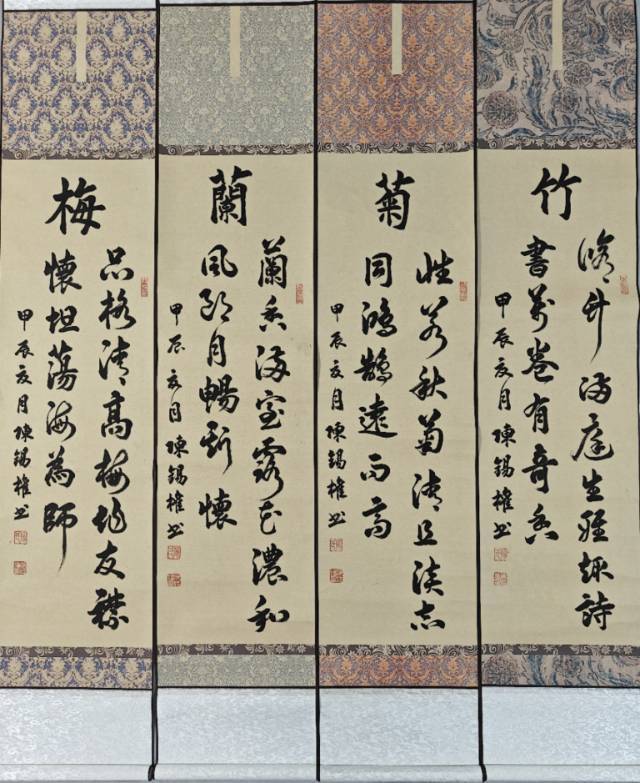 竹
脩竹滿庭生雅趣詩
書萬卷有奇香
甲辰亥月陳錫權书
菊
性若秋菊清且淡志
同鴻鵠遠而高
甲辰亥月陳錫權书
蘭
蘭香滿室露花濃和
風朗月暢斯懷
甲辰亥月陳錫權书
梅
品格清高梅作友襟
懷坦蕩海為師
甲辰亥月陳錫權书